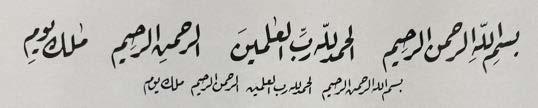 بسم الله الرحمن الرحیم الحمد لله رب العلمین الرحمن الرحیم ملک یوم
بسم الله الرحمن الرحیم الحمد لله رب العلمین الرحمن الرحیم ملک یوم